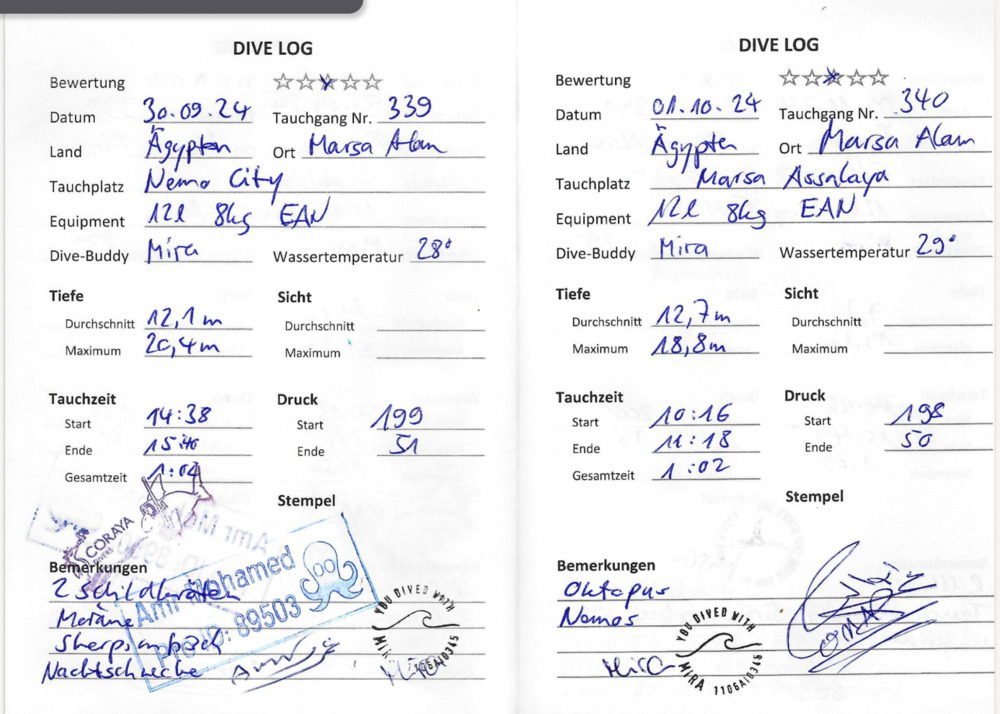 DIVE LOG
Bewertung
Datum 30.09.24 Tauchgang Nr. 339
Land Ägypten Ort Marsa Alam
Tauchplatz Nemo City
Equipment 12l 8kg EAN
Dive-Buddy Mira Wassertemperatur 28°
Tiefe Sicht
Durchschnitt 12,1m Durchschnitt
Maximum 20,4m Maximum
Tauchzeit Druck
Start 14:38 Start 199
Ende 15:40 Ende 51
Gesamtzeit 1:02
Stempel
CORAYA
Bemerkungen
Amr Mohamed
ID: 89503
2 Schildkröten
Muräne
Nachtschnecke
YOU DIVED WITH
Mira
DIVE LOG
Bewertung
Datum 01.10.24 Tauchgang Nr. 340
Land Ägypten Ort Marsa Alam
Tauchplatz Marsa Assalaya
Equipment 12l 8kg EAN
Dive-Buddy Mira Wassertemperatur 29°
Tiefe Sicht
Durchschnitt 12,7m Durchschnitt
Maximum 18,8m Maximum
Tauchzeit Druck
Start 10:16 Start 198
Ende 11:18 Ende 50
Gesamtzeit 1:02
Stempel
Bemerkungen
Oktopus
Nemos
Mira
YOU DIVED WITH
MIRA 1106AI0365
OMAR